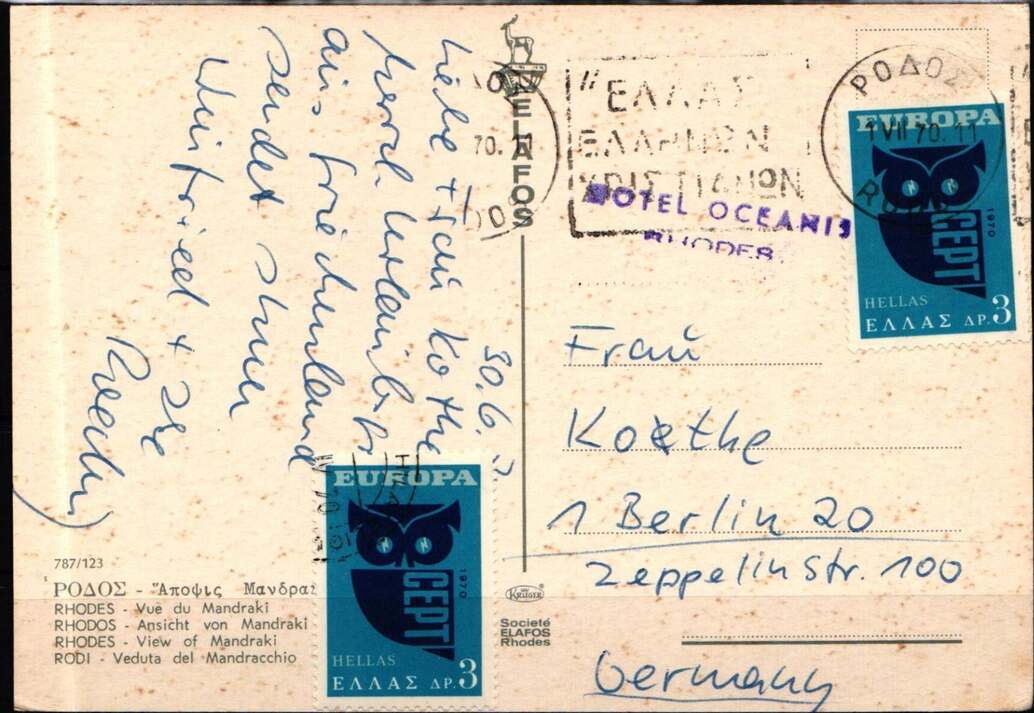 30.6.
Liebe Frau Kothe
aus Griechenland
sendet Ihnen
Winfried +
ELAFOS
"ΕΛΛΑΣ
ΕΛΛΗΝΩΝ
ΧΡΙΣΤΙΑΝΩΝ
HOTEL OCEANIS
RHODES
ΡΟΔΟΣ
1 VII 70. 11
EUROPA
CEPT
1970
HELLAS
ΕΛΛΑΣ ΔΡ. 3
Frau
Koethe
1 Berlin 20
Zeppelinstr. 100
Germany
EUROPA
CEPT
1970
HELLAS
ΕΛΛΑΣ ΔΡ. 3
787/123
ΡΟΔΟΣ - Ἄποψις Μανδρα
RHODES - Vue du Mandraki
RHODOS - Ansicht von Mandraki
RHODES - View of Mandraki
RODI - Veduta del Mandracchio
KRÜGER
Societé
ELAFOS
Rhodes